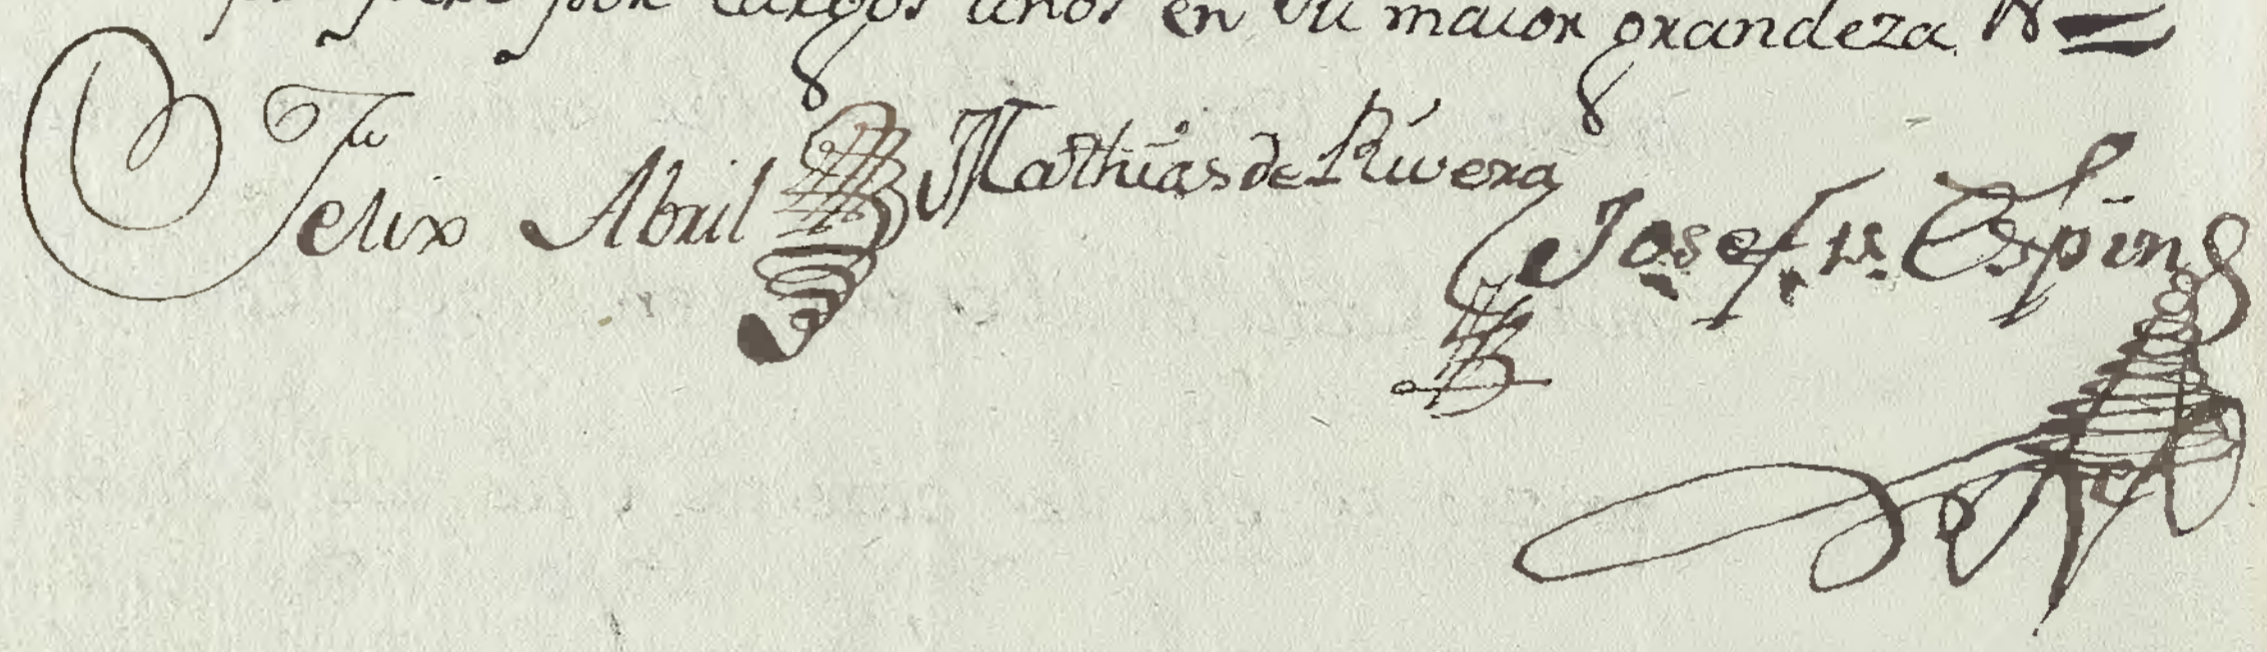 por largos años en su maior grandeza
Felix Abril Mathias de Rivera Josef Espin